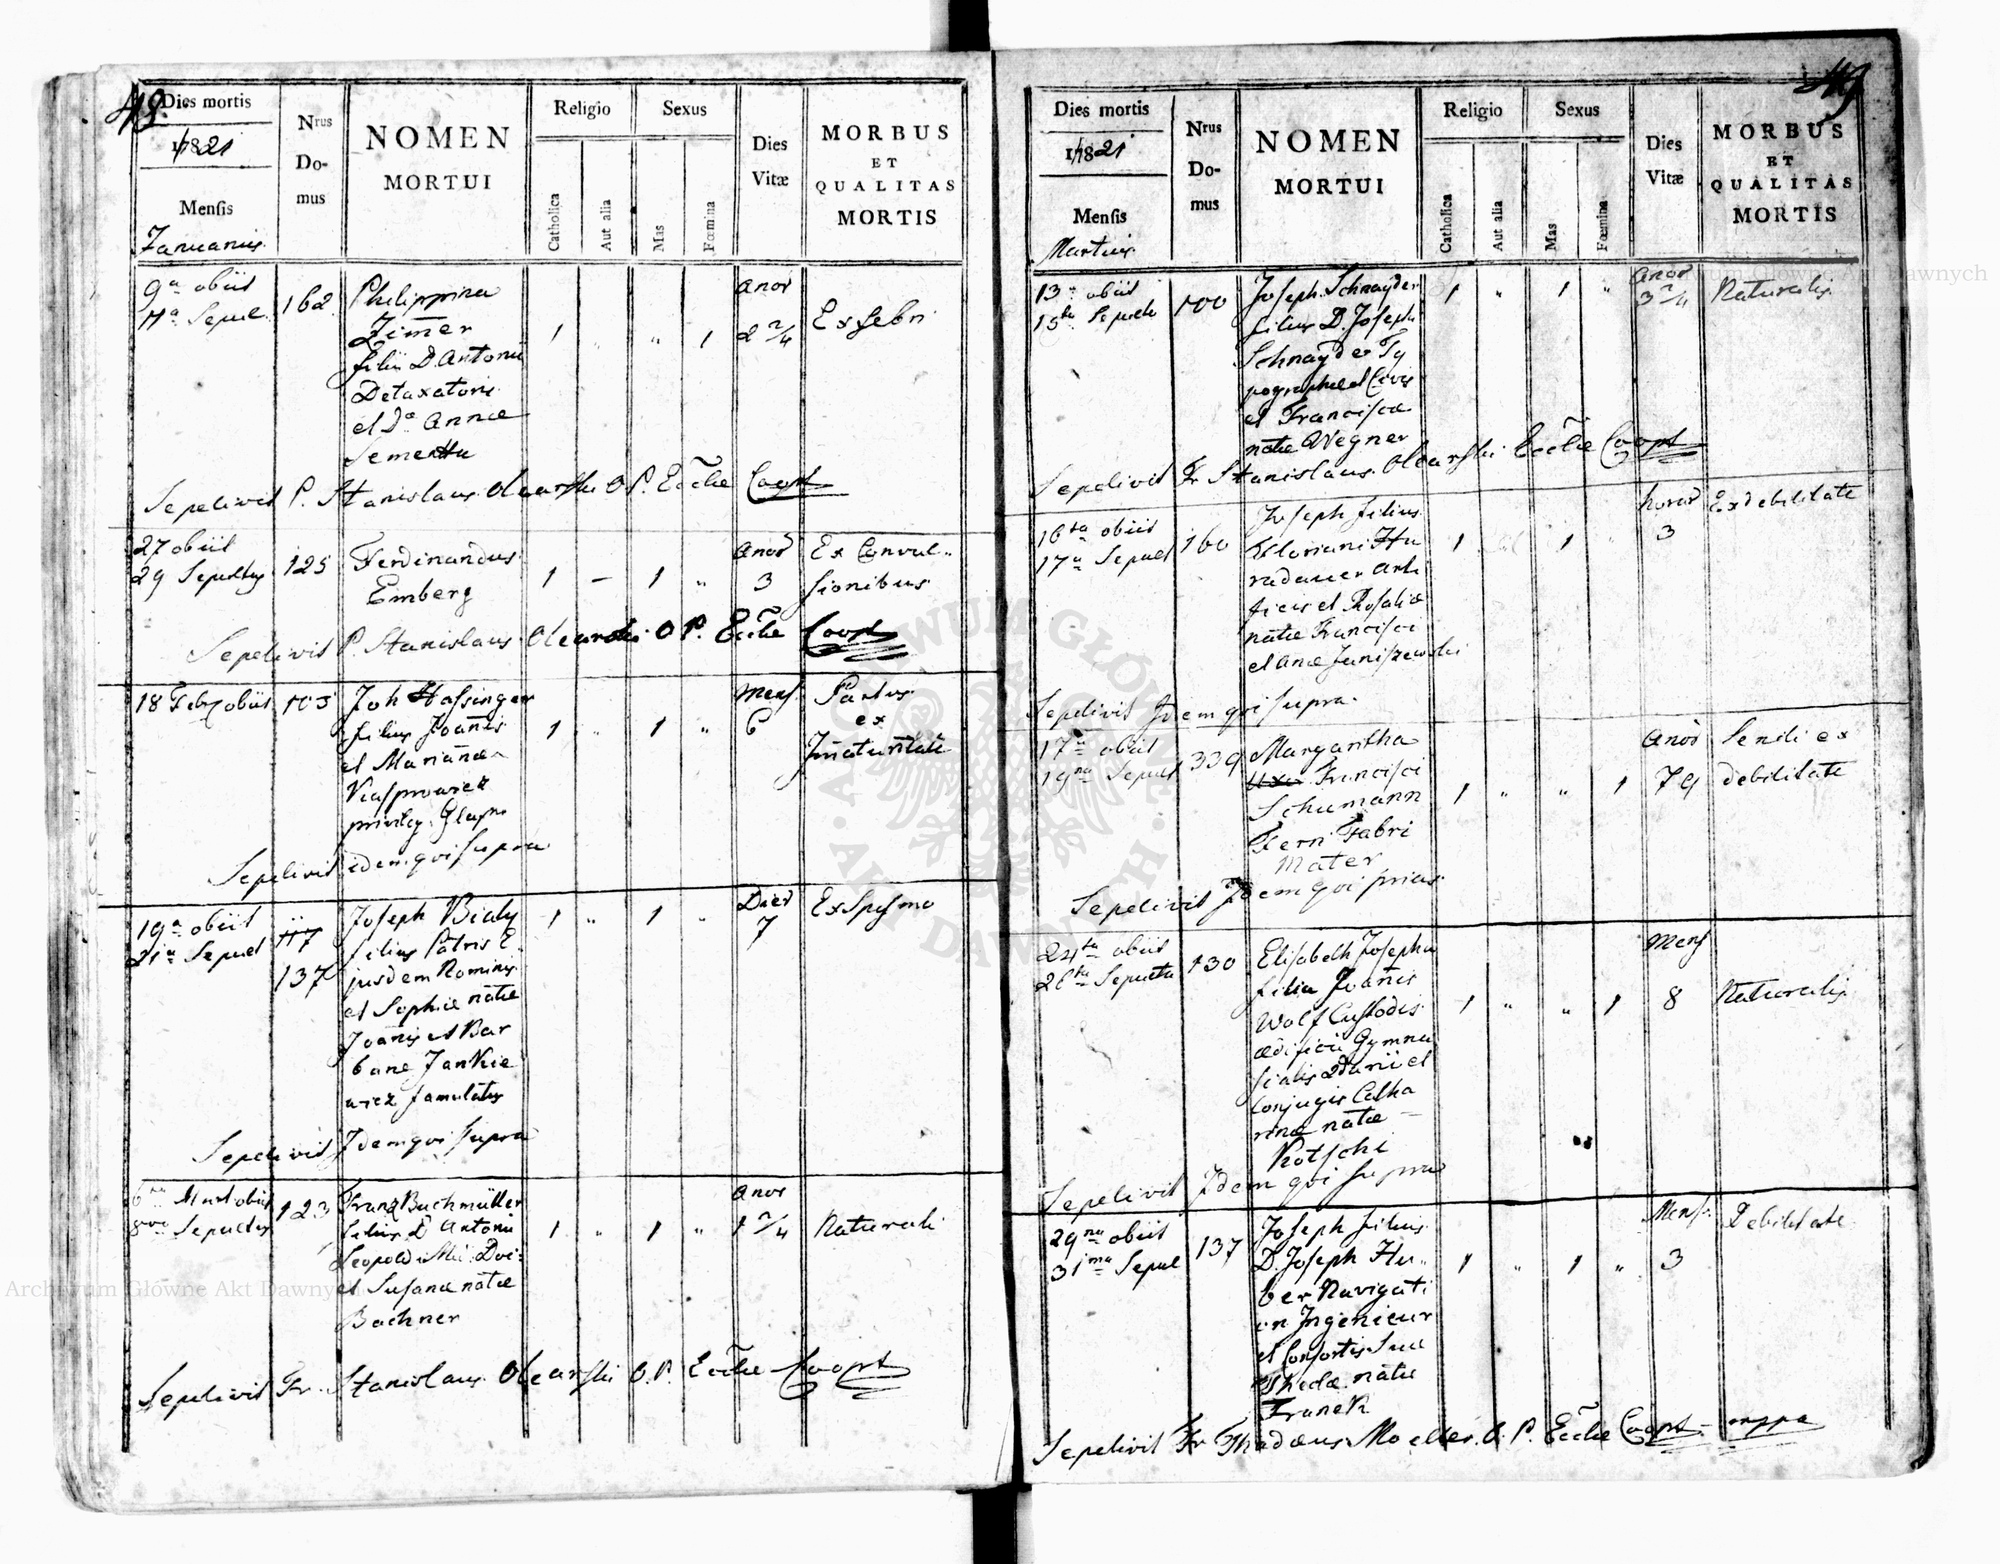 48.
Dies mortis
1821
Mensis
Januarius
Nrus
Do-
mus
NOMEN
MORTUI
Religio
Catholica
Aut alia
Sexus
Mas
Fœmina
Dies
Vitæ
MORBUS
ET
QUALITAS
MORTIS
9a obiit
11a Sepul.
162
Philippina
Zimer
filia D. Antonii
Detaxatoris
et Da Annæ
1 " " 1
Anor
2 2/4
Ex febri
Sepelivit P. Stanislaus Olearski O.P. Eccłie Coopt
27 obiit
29 Sepultus
125
Ferdinandus
Emberg
1 – 1 "
Anor
3
Ex Convul-
sionibus
Sepelivit P. Stanislaus Olearski O P. Eccłie Coopt
18 Febr obiit
103
Joh Hassinger
filius Joañis
et Mariañæ
privileg.
1 " 1 "
Mens
6
Partus
ex
Imaturitate
Sepelivit idem qvi supra
19a obiit
21a Sepul
117
137
Joseph Bialy
filius Patris E-
jusdem Nominis
et Sophiæ natæ
Joañis et Bar
baræ Jankie
wicz famulatus
1 " 1 "
Dier
7
Ex Spasmo
Sepelivit Idem qvi supra
6ta Mart obiit
8va Sepultus
123
Franz Buchmüller
filius D Antonii
Leopold
et Susanæ natæ
Bachner
1 " 1 "
Anor
1 2/4
Naturali
Sepelivit Fr. Stanislaus Olearski O.P. Eccłie Coopt
49
Dies mortis
1821
Mensis
Martius
Nrus
Do-
mus
NOMEN
MORTUI
Religio
Catholica
Aut alia
Sexus
Mas
Fœmina
Dies
Vitæ
MORBUS
ET
QUALITAS
MORTIS
13a obiit
15ta Sepult
100
Joseph Schnayder
filius D. Joseph
Schnayder Ty
pographi et Civis
et Franciscæ
natæ Wegner
1 " 1 "
Anor
3 2/4
Naturalis
Sepelivit Fr Stanislaus Olearski Eccłie Coopt
16ta obiit
17a Sepul
160
Joseph filius
Floriani Hu
radauer Arti
ficis et Rosaliæ
natæ Francisci
et Anæ Juniszewski
1 1 "
horar
3
Ex debilitate
Sepelivit Idem qvi supra
17a obiit
19na Sepul
339
Margaritha
Uxor Francisci
Schumann
Ferri Fabri
Mater
1 " " 1
Anor
79
Senili ex
debilitate
Sepelivit Idem qvi prius
24ta obiit
26ta Sepulta
130
Elisabeth Josepha
filia Joañis
Wolf Custodis
ædificii Gymna
sialis et
Conjugis Catha
rinæ natæ
Kotschi
1 " " 1
Mens
8
Naturalis
Sepelivit Idem qvi supra
29na obiit
31ma Sepul
137
Joseph filius
D. Joseph Hu-
ber Navigati
on Ingenieur
et Consortis Suæ
Theclæ natæ
Franck
1 " 1 "
Mens.
3
Debilitate
Sepelivit Fr Thadæus Moeller O.P. Eccłie Coopt mppa
Archiwum Główne Akt Dawnych
Archiwum Główne Akt Dawnych
ARCHIWUM GŁÓWNE AKT DAWNYCH